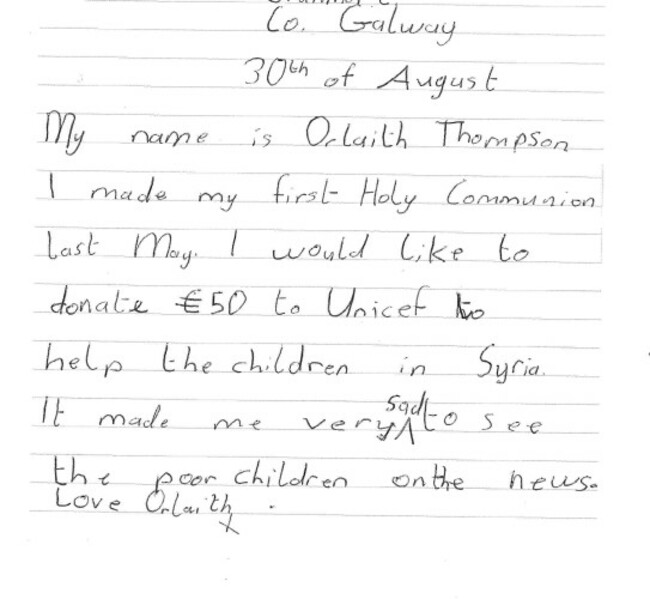 Co. Galway
30th of August
My name is Orlaith Thompson
I made my first Holy Communion
last May. I would like to
donate €50 to Unicef to
help the children in Syria.
It made me very sad to see
the poor children on the news.
Love Orlaith
x